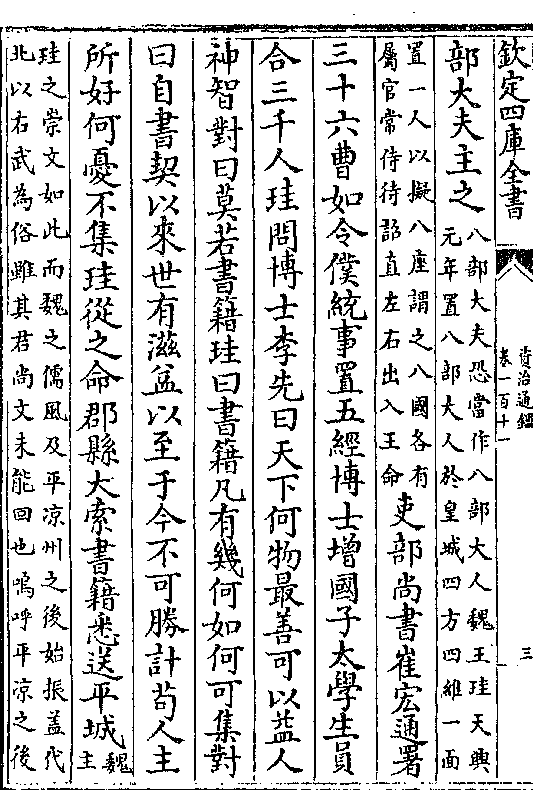 欽定四庫全書
資治通鑑
卷一百十一
三
部大夫主之八部大夫恐當作八部大人魏王珪天興
元年置八部大人於皇城四方四維一面
置一人以擬八座謂之八國各有
屬官常侍待詔直左右出入王命吏部尚書崔宏通署
三十六曹如令僕統事置五經博士增國子太學生員
合三千人珪問博士李先曰天下何物最善可以益人
神智對曰莫若書籍珪曰書籍凡有幾何如何可集對
曰自書契以來世有滋益以至于今不可勝計茍人主
所好何憂不集珪從之命郡縣大索書籍悉送平城魏
主
珪之崇文如此而魏之儒風及平凉州之後始振蓋代
北以右武為俗雖其君尚文未能回也嗚呼平凉之後